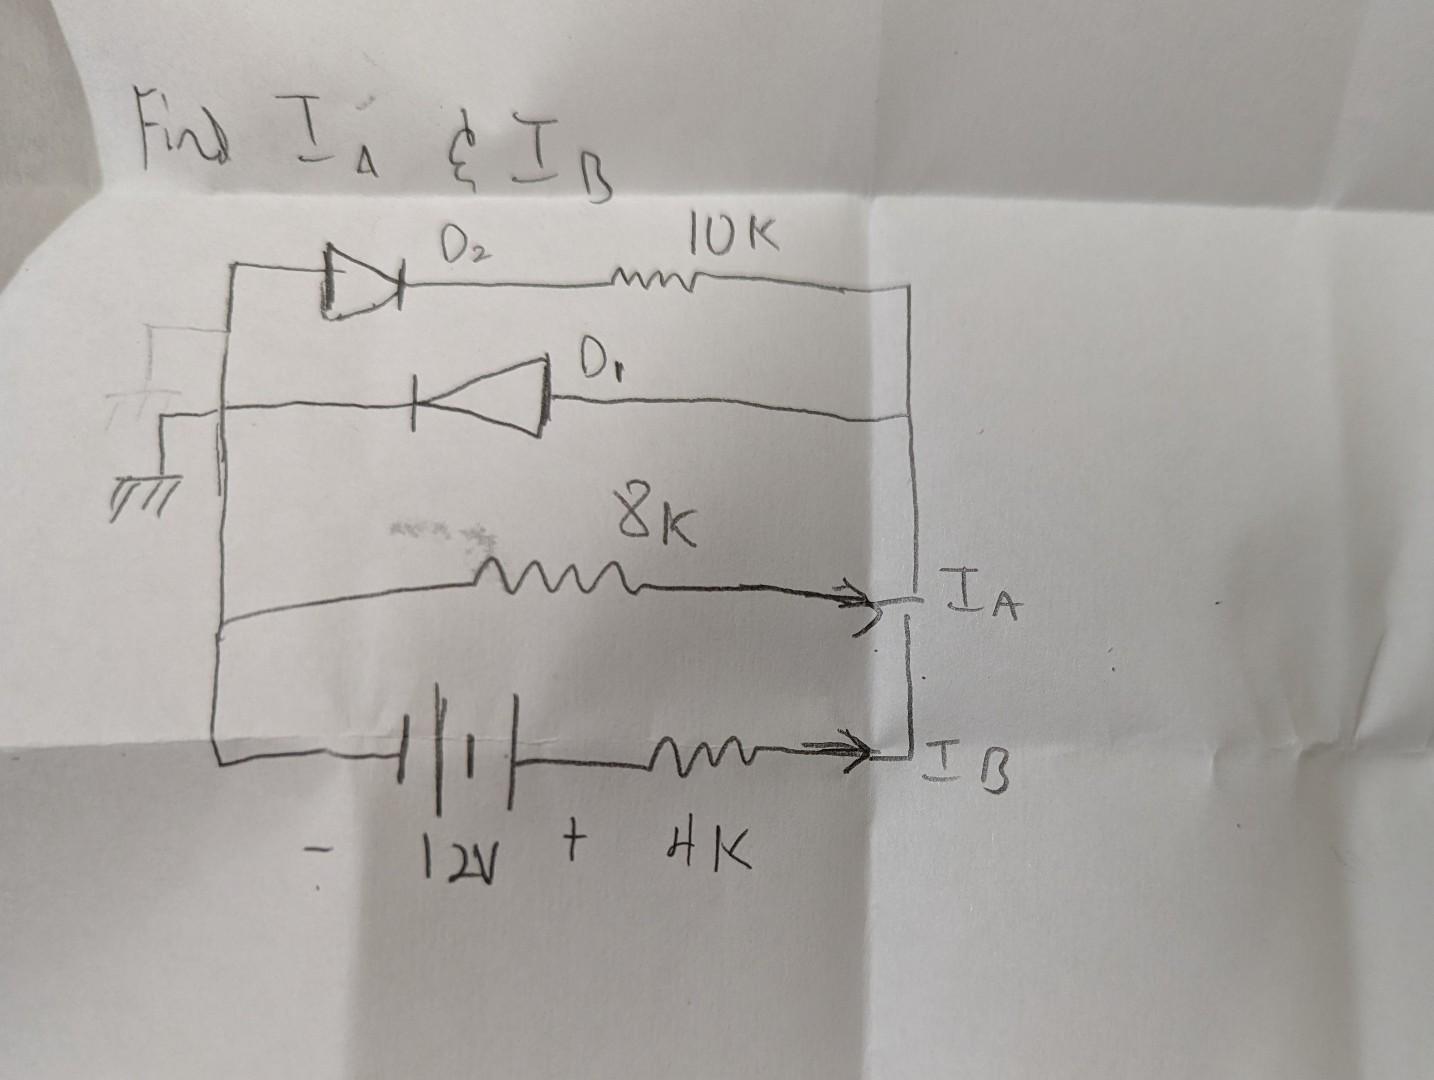 Find I A & I B
D2 10K
D1
8K
I A
I B
- 12V + 4K